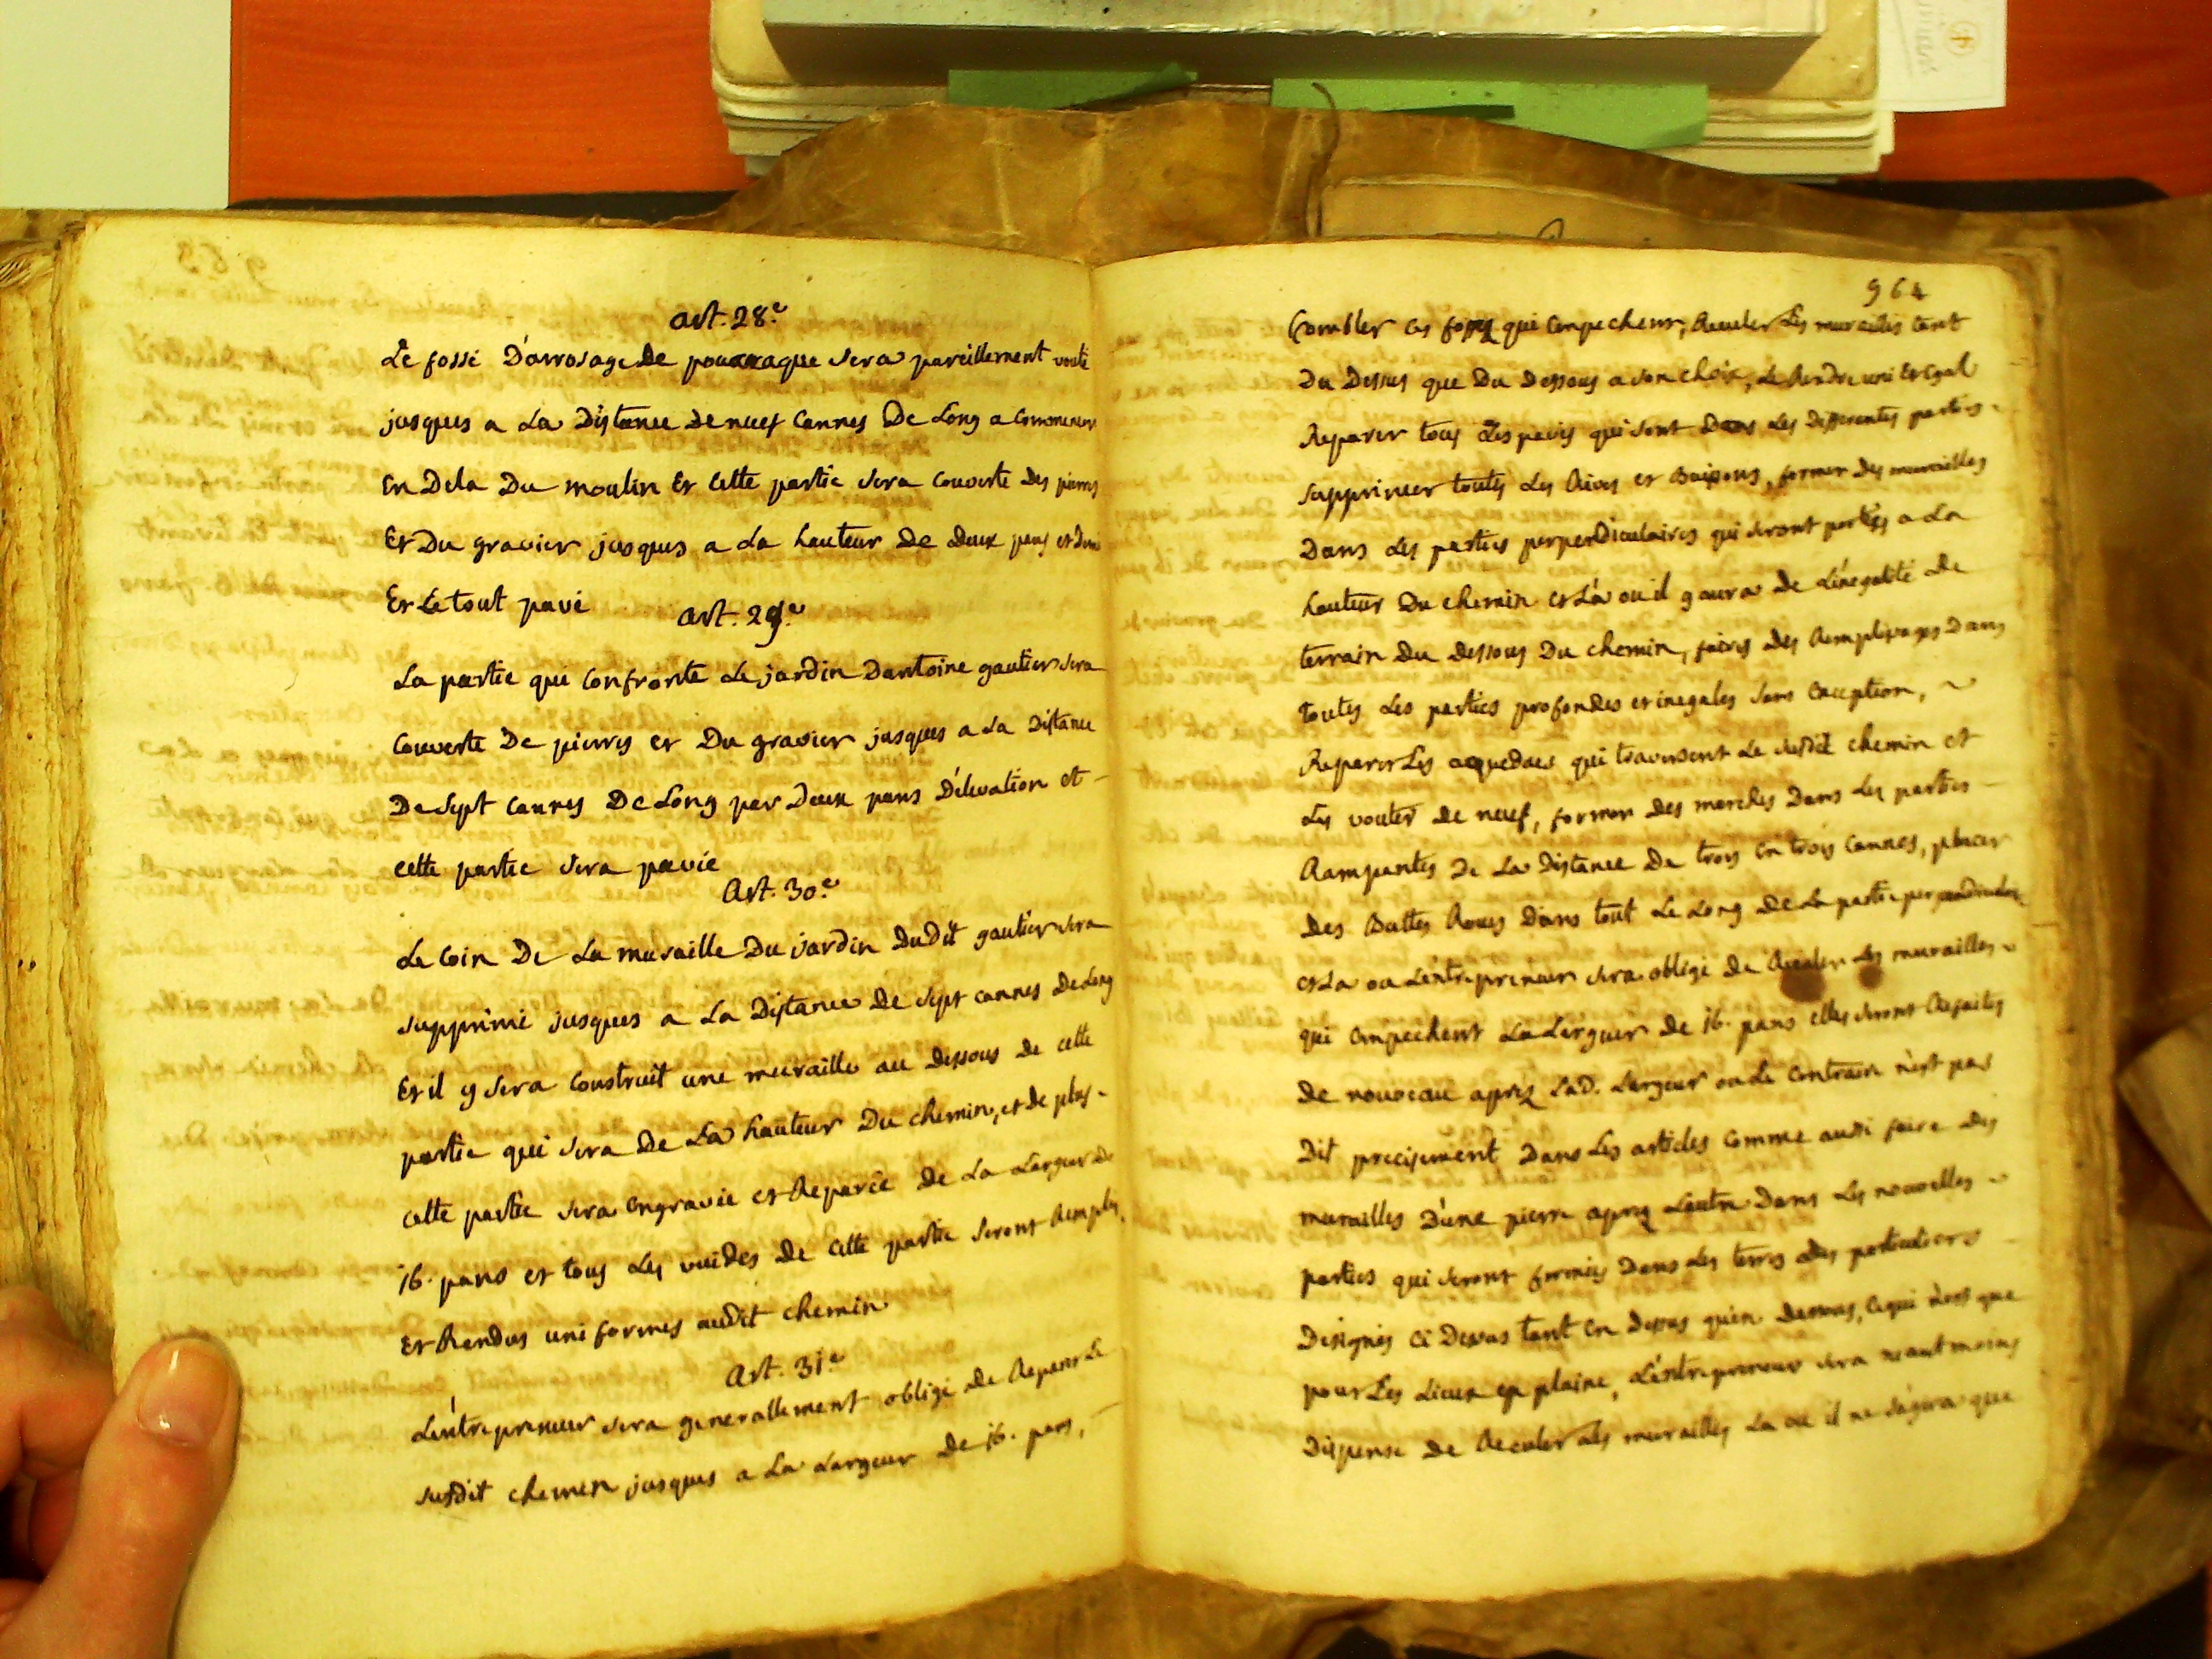 art. 28.e
Le fossé D'arrosage De pourraque sera pareillement vouté
jusques a La Distance de neuf cannes De Long a commencer
En Dela Du moulin Et cette partie sera couverte Des pierres
Et Du gravier jusques a La hauteur De Deux pans et demi
Et Le tout pavé
art. 29.e
La partie qui confronte Le jardin Dantoine gautier sera
couverte De pierres et Du gravier jusques a La Distance
De sept cannes De Long par Deux pans D'elevation et
cette partie sera pavée
Art. 30.e
Le coin De La muraille Du jardin Dudit gautier sera
supprimé jusques a La Distance De sept cannes De Long
Et il y sera construit une muraille au Dessous de cette
partie qui sera De La hauteur Du chemin, et de plus
cette partie sera engravée et Reparée De La Largeur De
16. pans et tous Les vuides De cette partie seront Remplis
Et Rendus uniformes audit chemin
Art. 31.e
L'entrepreneur sera generallement obligé De Reparer Le
susdit chemin jusques a La Largeur De 16. pans,
964
Combler les fossez qui empechent, Reculer Les murailles tant
Du Dessus que Du Dessous a son choix, Le Rendre uni Et Egal
Reparer tous Les pavés qui sont Dans Les Differentes parties
supprimer toutes Les Rives et Buissons, former Des murailles
Dans Les parties perpendiculaires qui seront portées a La
hauteur Du chemin et La ou il y aura De L'inegalité De
terrain Du Dessous Du chemin, faires Des Remplissages Dans
toutes Les parties profondes et inegales sans Exception,
Reparer Les aqueducs qui traversent Le susdit chemin et
Les vouter De neuf, former Des marches Dans Les parties
Rampantes De La Distance De trois En trois cannes, placer
Des Buttes Roues Dans tout Le Long De La partie perpendiculaire
et La ou L'entrepreneur sera obligé De Reculer Les murailles
qui Empechent La Largeur De 16. pans elles seront Refaites
De nouveau aprez LaD. Largeur ou Le Contraire n'est pas
Dit precisement Dans Les articles comme aussi faire Des
murailles D'une pierre aprez L'autre Dans Les nouvelles
parties qui seront formées Dans Les terres Des particuliers
Designés ci Dessus tant En Dessus qu'en Dessous, Ce qui n'est que
pour Les Lieux En plaine, L'entrepreneur sera neantmoins
Dispensé De Reculer Les murailles La ou il ne s'agira que